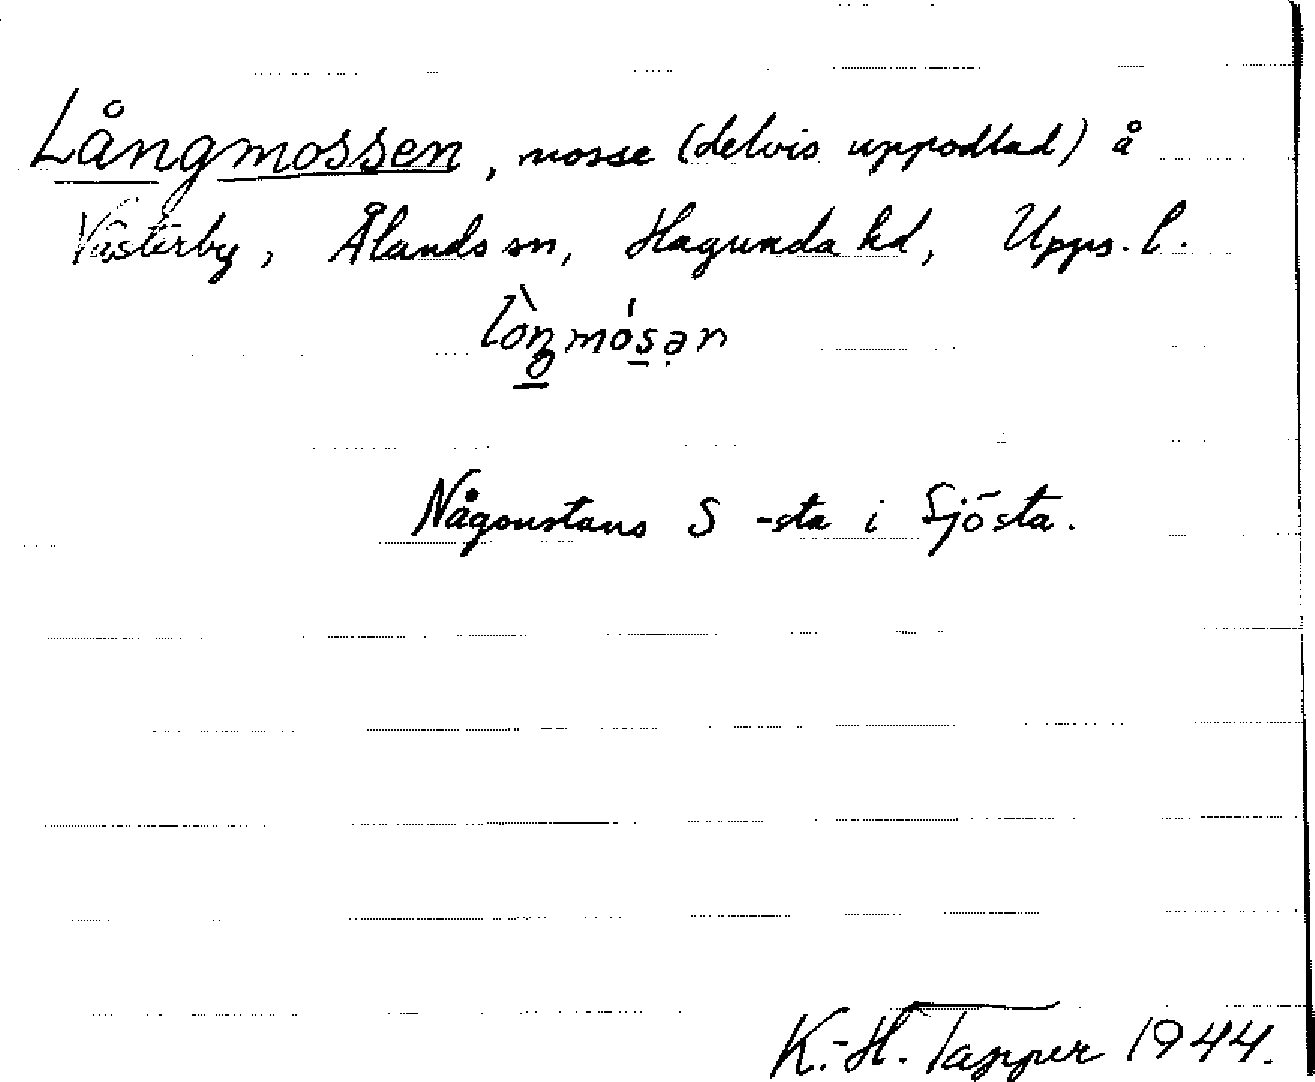 Långmossen, mosse (delvis uppodlad) å
Västerby, Ålands sn, Hagunda hd, Upps. l.
lòŋmósən
Någonstans S -sta i Sjösta.
K.-H. Tapper 1944.